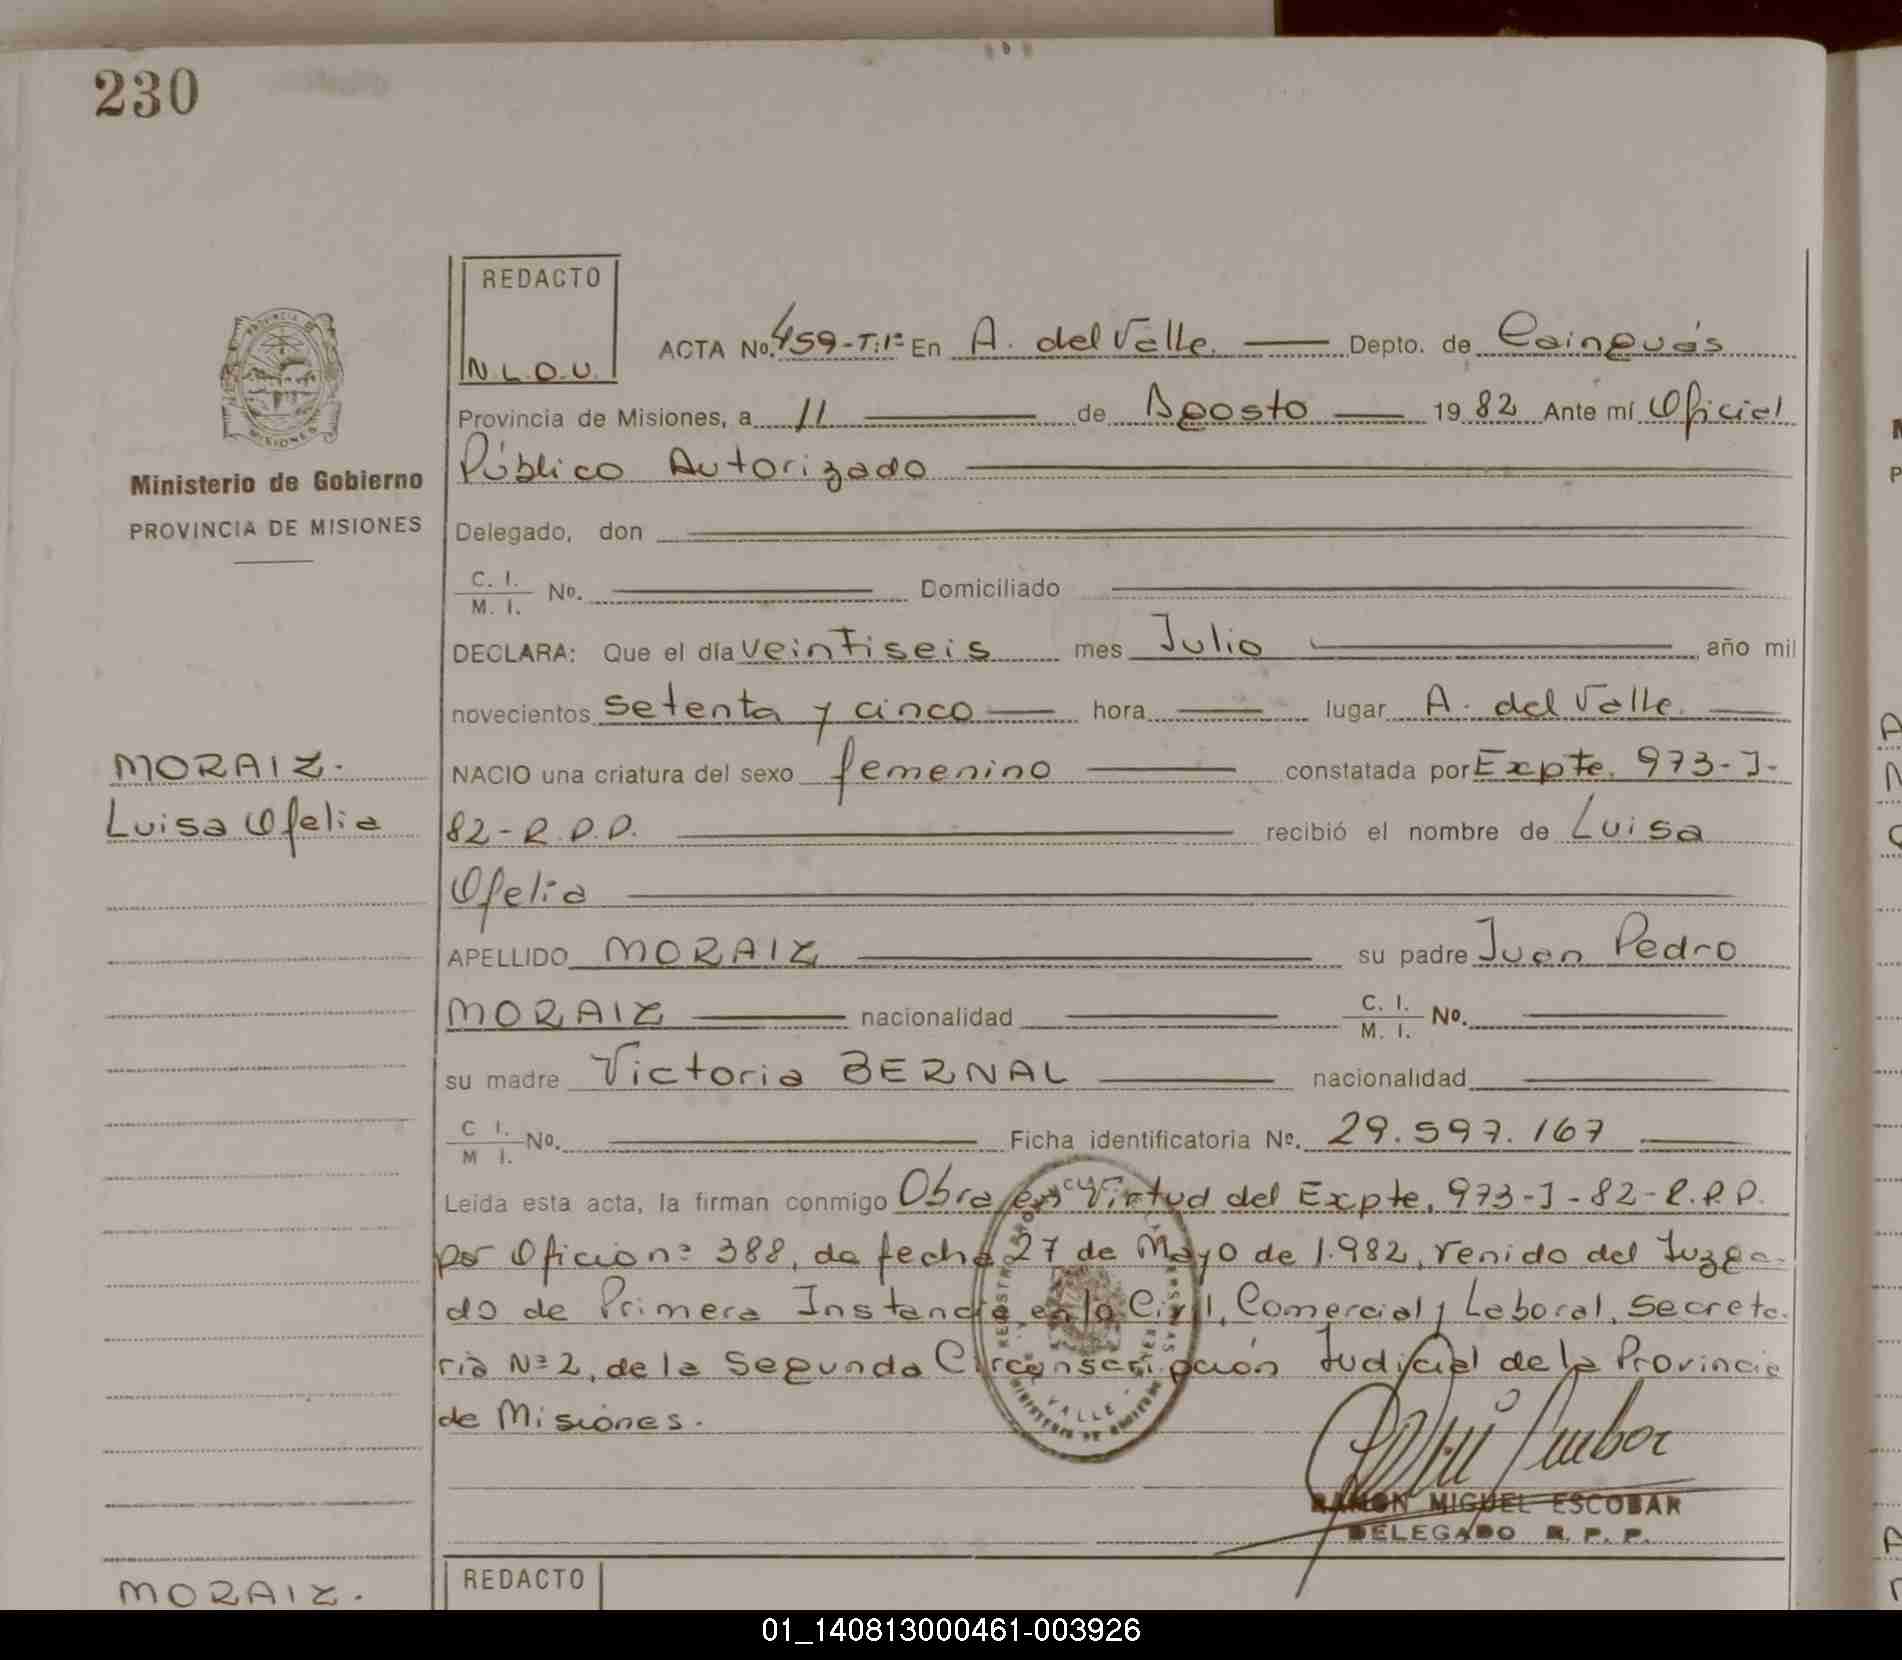 230
REDACTO
N.L.O.U.
PROVINCIA DE
MISIONES
Ministerio de Gobierno
PROVINCIA DE MISIONES
ACTA No. 459-T:1º En A. del Valle. Depto. de Cainguás
Provincia de Misiones, a 11 de Agosto 1982 Ante mí Oficial
Público Autorizado
Delegado, don
C. I.
M. I. No. Domiciliado
DECLARA: Que el día veintiseis mes Julio año mil
novecientos setenta y cinco hora lugar A. del Valle.
MORAIZ.
NACIO una criatura del sexo femenino constatada por Expte. 973-J-
Luisa Ofelia
82-R.P.P. recibió el nombre de Luisa
Ofelia
APELLIDO MORAIZ su padre Juan Pedro
MORAIZ nacionalidad C. I.
M. I. No.
su madre Victoria BERNAL nacionalidad
C I.
M I. No. Ficha identificatoria No. 29.597.167
Leída esta acta, la firman conmigo Obra en Virtud del Expte. 973-J-82-R.P.P.
por Oficio nº 388, de fecha 27 de Mayo de 1.982, venido del Juzga-
do de Primera Instancia en lo Civil, Comercial y Laboral, Secreta-
ria Nº 2, de la Segunda Circunscripción Judicial de la Provincia
de Misiones.
VALLE
RAMON MIGUEL ESCOBAR
DELEGADO R. P. P.
REDACTO
MORAIZ.
01_140813000461-003926